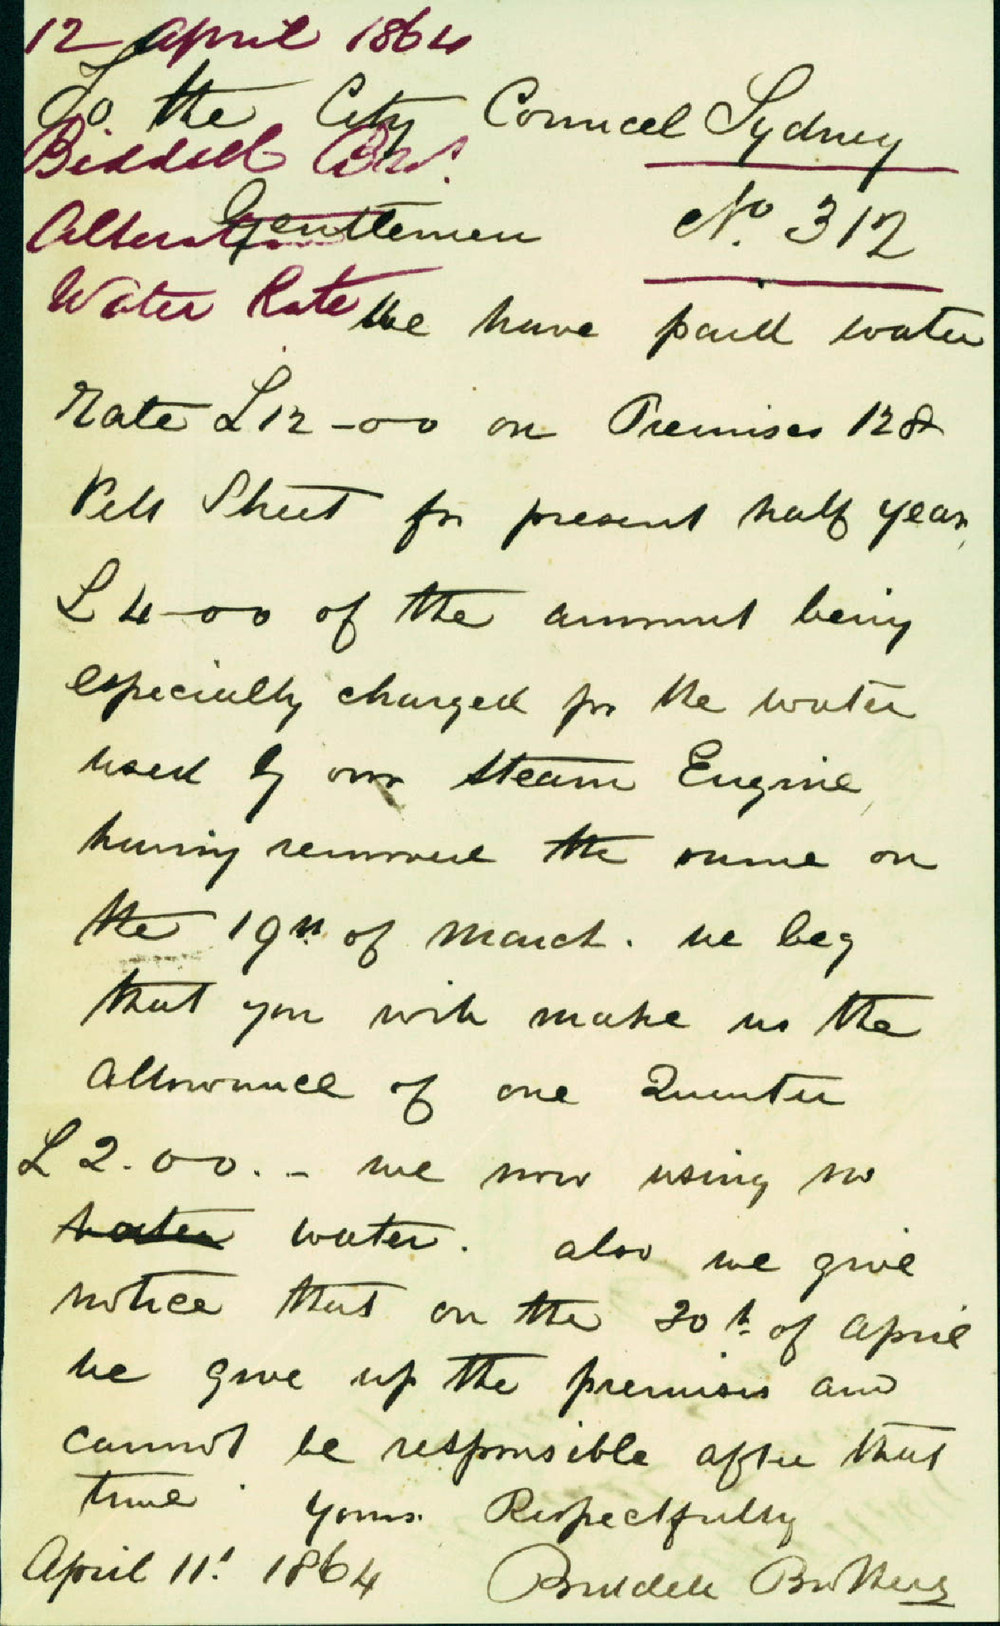 12 April 1864
To the City Council Sydney
Biddell Bros.
Gentlemen No. 312
Alteration
Water Rate We have paid water
Rate £12-00 on Premises 128
Pitt Street for present half year,
£4-00 of the amount being
especially charged for the water
used by our steam Engine,
having removed the same on
the 19th of March. we beg
that you will make us the
allowance of one Quarter
£2.00.- we now using no
water water. also we give
notice that on the 20th of April
we give up the premises and
cannot be responsible after that
time. Yours Respectfully
April 11t 1864 Biddell Brothers